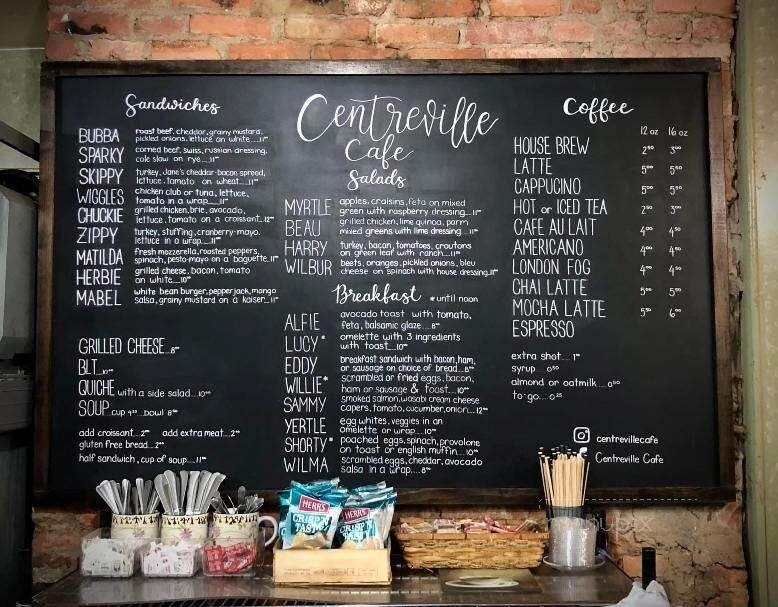 Centreville
Cafe
Sandwiches
BUBBA roast beef, cheddar, grainy mustard,
pickled onions, lettuce on white....11⁰⁰
SPARKY corned beef, swiss, russian dressing,
cole slaw on rye....11⁰⁰
SKIPPY turkey, Jane's cheddar-bacon spread,
lettuce, tomato on wheat....11⁰⁰
WIGGLES chicken club or tuna, lettuce,
tomato in a wrap....11⁰⁰
CHUCKIE grilled chicken, brie, avocado,
lettuce, tomato on a croissant..12⁰⁰
ZIPPY turkey, stuffing, cranberry-mayo,
lettuce in a wrap....11⁰⁰
MATILDA fresh mozzerella, roasted peppers,
spinach, pesto-mayo on a baguette..11⁰⁰
HERBIE grilled cheese, bacon, tomato
on white....10⁰⁰
MABEL white bean burger, pepperjack, mango
salsa, grainy mustard on a kaiser...11⁰⁰
GRILLED CHEESE...8⁰⁰
BLT...10⁰⁰
QUICHE with a side salad...10⁰⁰
SOUP..cup ...bowl 8⁰⁰
add croissant...2⁰⁰ add extra meat...2⁰⁰
gluten free bread...2⁰⁰
half sandwich, cup of soup....11⁰⁰
Salads
MYRTLE apples, craisins, feta on mixed
green with raspberry dressing....11⁰⁰
BEAU grilled chicken, lime quinoa, parm
mixed greens with lime dressing...11⁰⁰
HARRY turkey, bacon, tomatoes, croutons
on green leaf with ranch....11⁰⁰
WILBUR beets, oranges, pickled onions, bleu
cheese on spinach with house dressing.11⁰⁰
Breakfast *until noon
ALFIE avocado toast with tomato,
feta, balsamic glaze....8⁰⁰
LUCY* omelette with 3 ingredients
with toast....10⁰⁰
EDDY breakfast sandwich with bacon, ham,
or sausage on choice of bread...8⁰⁰
WILLIE* scrambled or fried eggs, bacon,
ham or sausage & toast....10⁰⁰
SAMMY smoked salmon, wasabi cream cheese
capers, tomato, cucumber, onion....12⁰⁰
YERTLE egg whites, veggies in an
omelette or wrap....10⁰⁰
SHORTY* poached eggs, spinach, provolone
on toast or english muffin....10⁰⁰
WILMA scrambled eggs, cheddar, avocado
salsa in a wrap....8⁰⁰
Coffee
12 oz 16 oz
HOUSE BREW 2⁵⁰ 3⁰⁰
LATTE 5⁰⁰ 5⁵⁰
CAPPUCINO 5⁰⁰ 5⁵⁰
HOT or ICED TEA 2⁵⁰ 3⁰⁰
CAFE AU LAIT 4⁰⁰ 4⁵⁰
AMERICANO 4⁰⁰ 4⁵⁰
LONDON FOG 4⁰⁰ 4⁵⁰
CHAI LATTE 5⁰⁰ 5⁵⁰
MOCHA LATTE 5⁵⁰ 6⁰⁰
ESPRESSO
extra shot.... 1⁰⁰
syrup....0⁵⁰
almond or oatmilk....0⁵⁰
to-go....0²⁵
centrevillecafe
Centreville Cafe
HERR'S
CRISP'N
TASTY
HERR'S
CRISP'N
TASTY